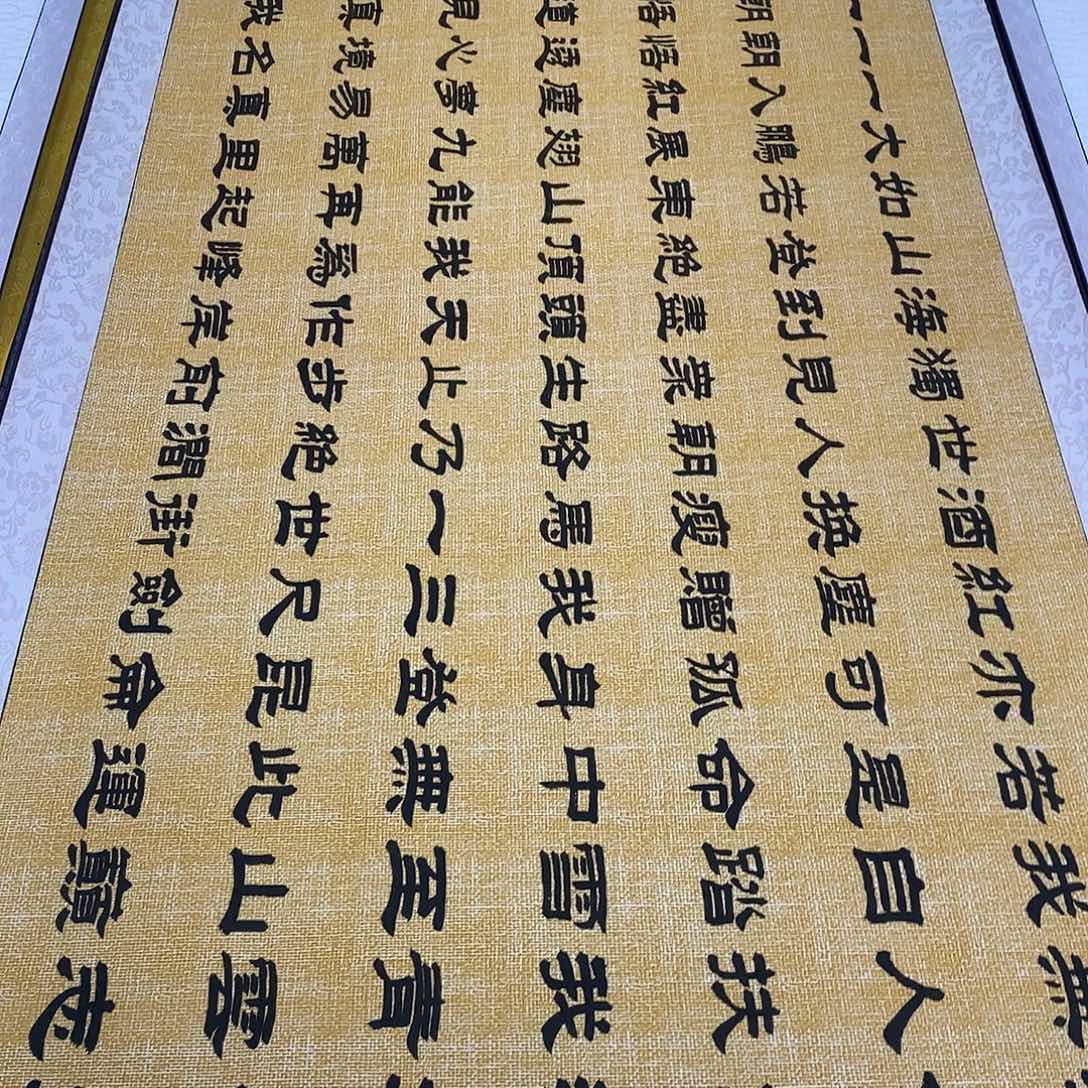 一朝悟道見真我
一朝悟透心境名
一入紅塵夢易真
大鵬展翅九萬里
如若東山能再起
山登絕頂我為峰
海到盡頭天作岸
獨見業生止步前
世人朝路乃絕濶
酒換瘦馬一世街
紅塵贈我三尺劍
亦可孤身登昆侖
若是命中無此運
我自踏雪至山巔
無人扶我青雲志